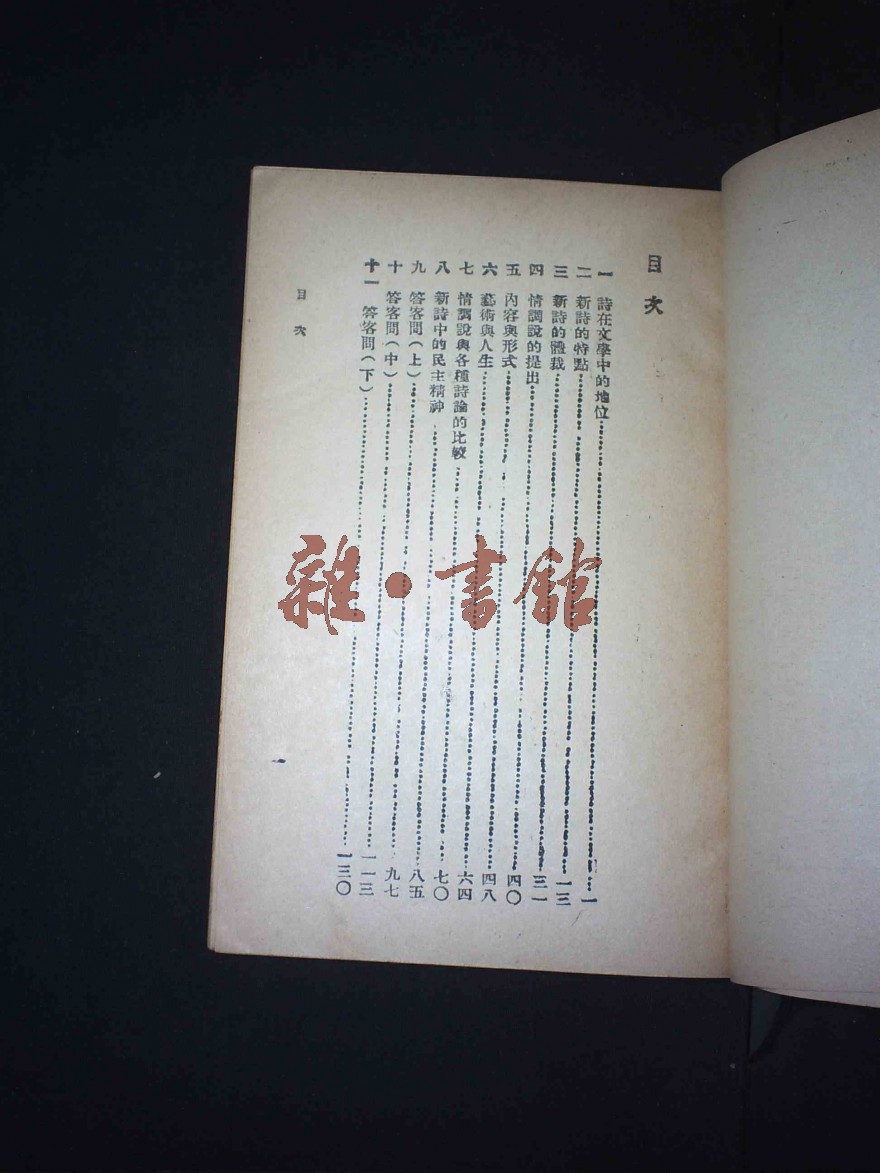 目次
一 詩在文學中的地位……一
二 新詩的特點……一三
三 新詩的體裁……三一
四 情調說的提出……四〇
五 內容與形式……四八
六 藝術與人生……六四
七 情調說與各種詩論的比較……七〇
八 新詩中的民主精神……八五
九 答客問(上)……九七
十 答客問(中)……一一三
十一 答客問(下)……一三〇
目次
一
雜·書館